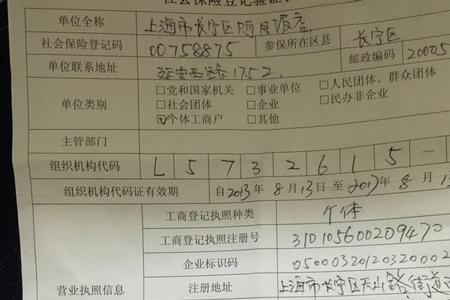 社会保险登记验证
单位全称 上海市长宁区阿月饭店
社会保险登记码 00758875 参保所在区县 长宁区
单位联系地址 延安西路1752 邮政编码 20005
单位类别 □党和国家机关 □事业单位 □人民团体、群众团体
□社会团体 □企业 □民办非企业
☑个体工商户 □其他
主管部门
组织机构代码 L5732615-
组织机构代码证有效期 自2013年8月13日至2017年8月1
工商登记执照种类 个体
工商登记执照注册号 310105600209470
企业标识码 05000320120320002
营业执照信息 注册地址 上海市长宁区天山路街道